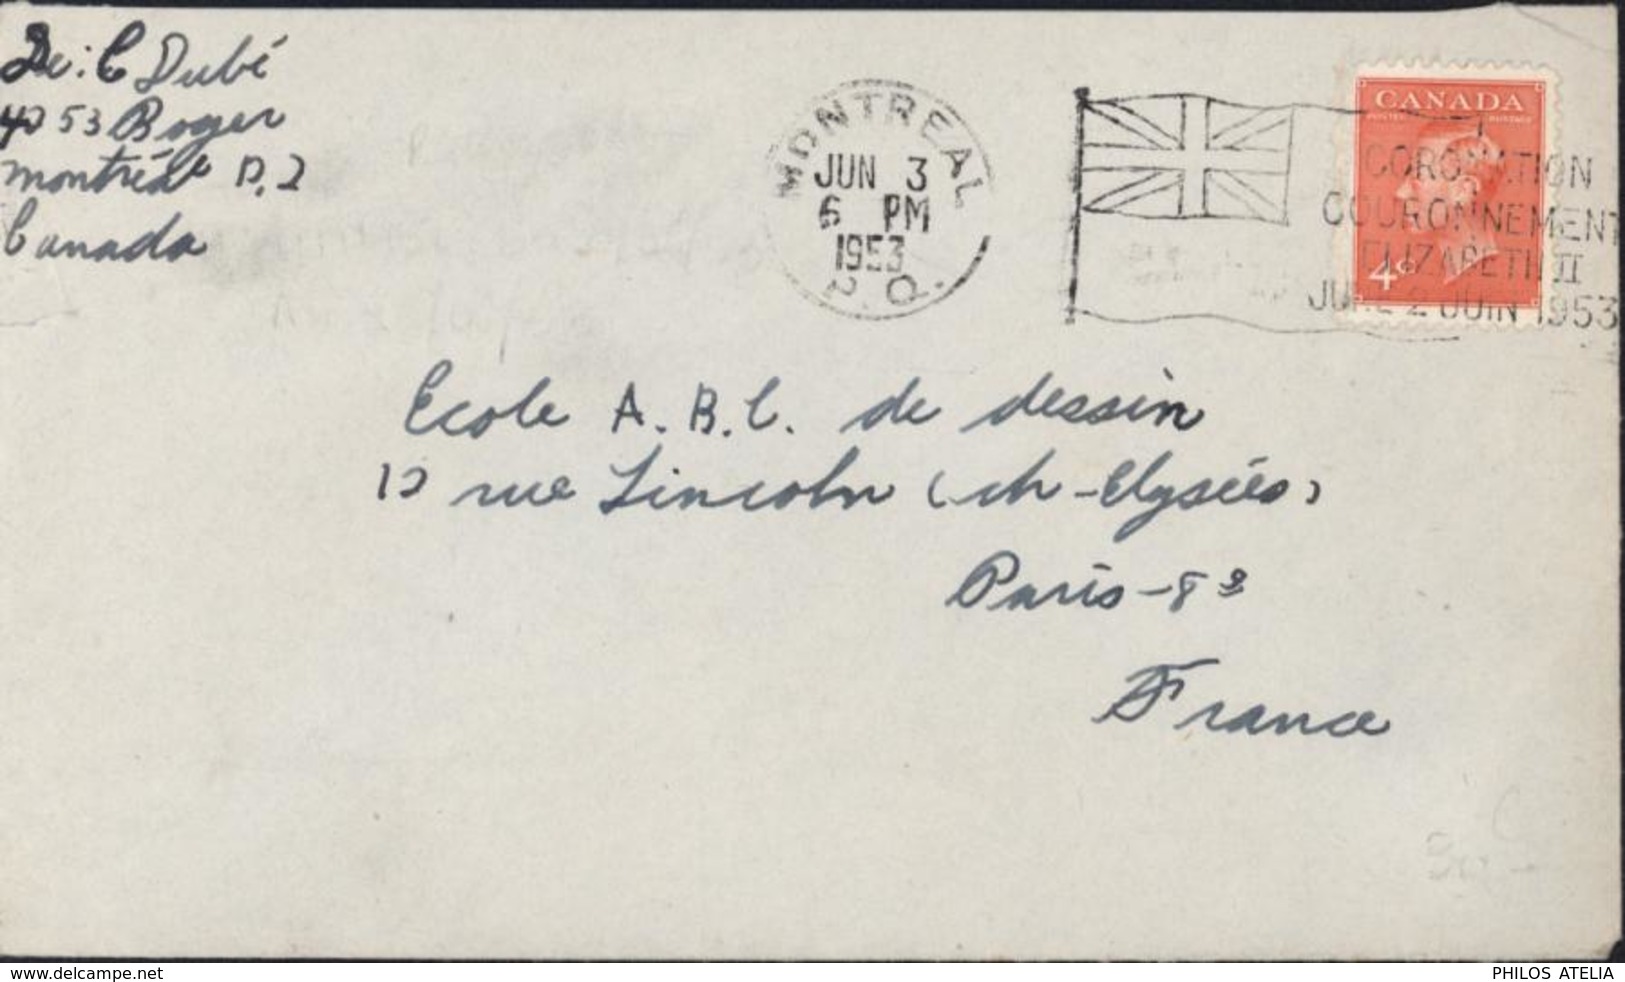 De: C Dubé
4053 Boyer
Montréal P.Q
Canada
MONTREAL
JUN 3
6 PM
1953
P.Q.
CANADA
POSTES POSTAGE
4¢
CORONATION
COURONNEMENT
ELIZABETH II
JUNE 2 JUIN 1953
Ecole A.B.C. de dessin
10 rue Lincoln (ch-Elysées)
Paris-8e
France
www.delcampe.net
PHILOS ATELIA